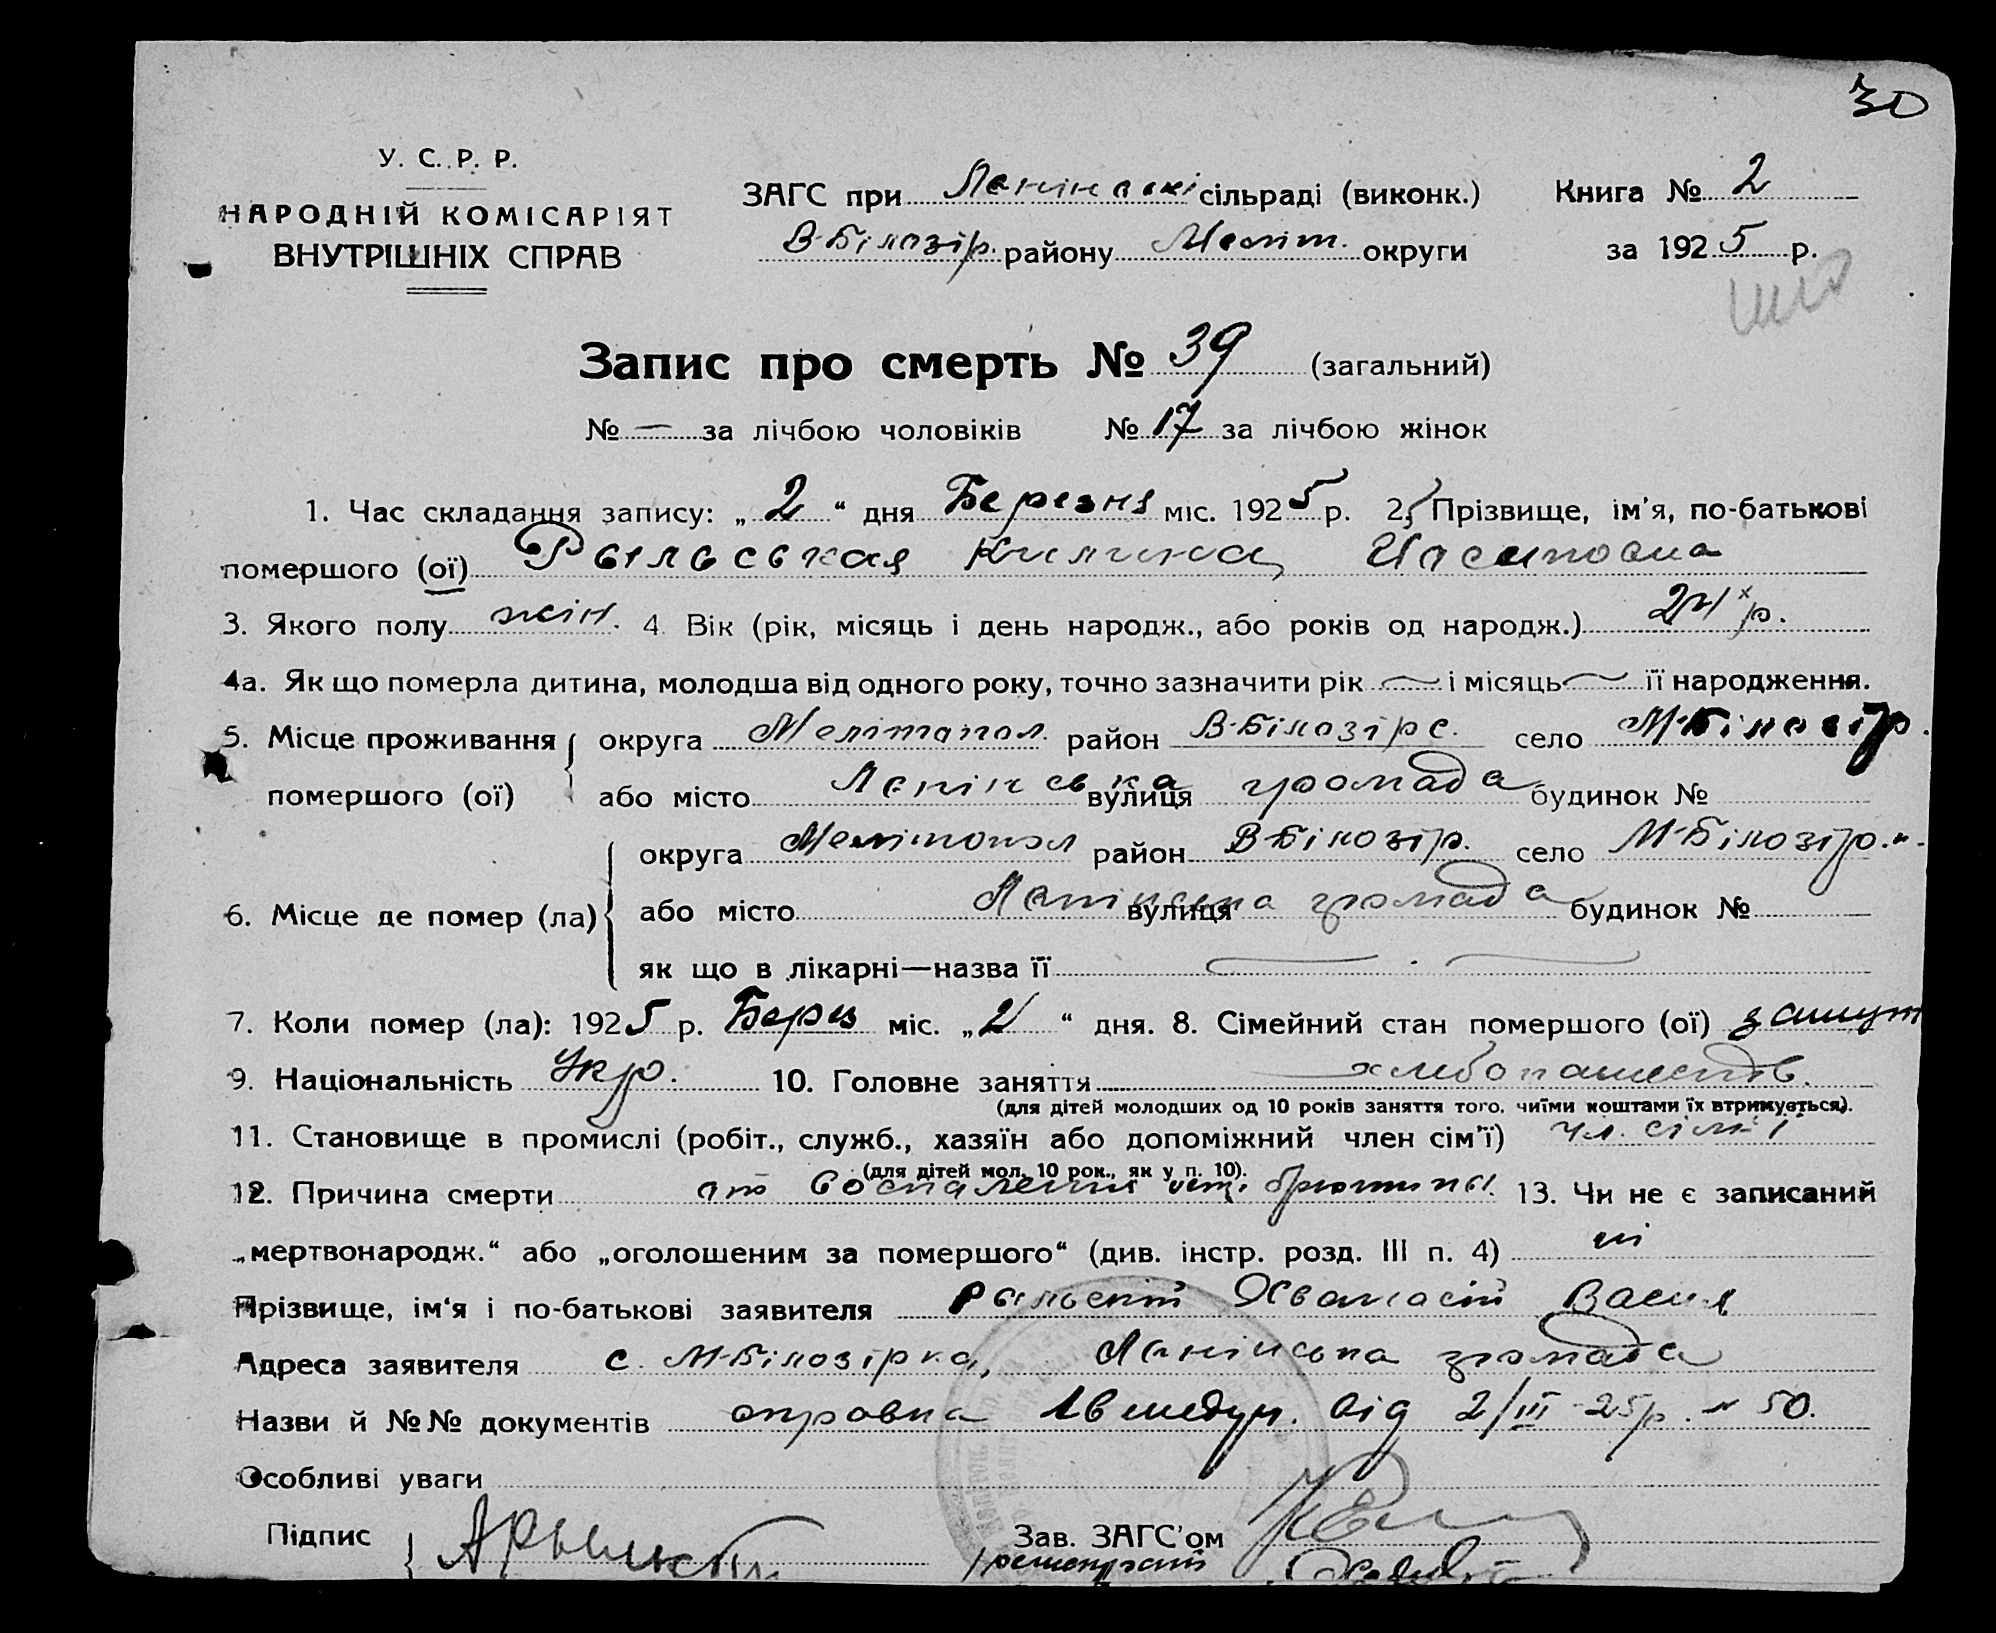 30
У. С. Р. Р.
НАРОДНІЙ КОМІСАРІЯТ
ВНУТРІШНІХ СПРАВ
ЗАГС при Ленінські сільраді (виконк.) Книга № 2
В-Білозір. району Меліт. округи за 1925 р.
Запис про смерть № 39 (загальний)
№ — за лічбою чоловіків № 17 за лічбою жінок
1. Час складання запису: „2“ дня Березня міс. 1925 р. 2. Прізвище, ім'я, по-батькові
помершого (ої) Рыльськая Килина
3. Якого полу жін. 4. Вік (рік, місяць і день народж., або років од народж.) 24 р.
4а. Як що померла дитина, молодша від одного року, точно зазначити рік — і місяць — її народження.
5. Місце проживання округа Мелітопол. район В-Білозірс. село М-Білозір.
помершого (ої) або місто Ленінська вулиця громада будинок №
округа Мелітопол район В-Білозір. село М-Білозір.
6. Місце де помер (ла) або місто Ленінська вулиця громада будинок №
як що в лікарні—назва її — . —
7. Коли помер (ла): 1925 р. Берез міс. „2“ дня. 8. Сімейний стан помершого (ої) замуж
9. Національність Укр. 10. Головне заняття
(для дітей молодших од 10 років заняття того, чиїми коштами їх втримується).
11. Становище в промислі (робіт., служб., хазяїн або допоміжний член сім'ї) чл. сімї
(для дітей мол. 10 рок., як у п. 10).
12. Причина смерти от воспаления брюшины. 13. Чи не є записаний
„мертвонародж.“ або „оголошеним за помершого“ (див. інстр. розд. III п. 4) ні
Прізвище, ім'я і по-батькові заявителя Рыльскій
Адреса заявителя с. М-Білозірка, Ленінська громада
Назви й №№ документів справка від 2/III-25р. № 50.
Особливі уваги
Підпис Зав. ЗАГС'ом